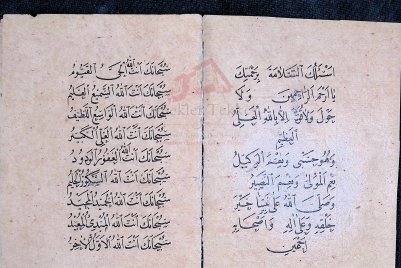 اسئلك السلامة برحمتك
يا ارحم الراحمين ولا
حول ولا قوة الا بالله العلى
العظيم
وهو حسبى ونعم الوكيل
نعم المولى ونعم النصير
وصلى الله على نبينا خير
خلقه وعلى اله واصحابه
اجمعين
سبحانك انت الله الحى القيوم
سبحانك انت الله السميع العليم
سبحانك انت الله الواسع اللطيف
سبحانك انت الله العلى الكبير
سبحانك انت الله الغفور الودود
سبحانك انت الله الشكور الحليم
سبحانك انت الله الحميد المجيد
سبحانك انت الله المبدئ المعيد
سبحانك انت الله الاول الاخر